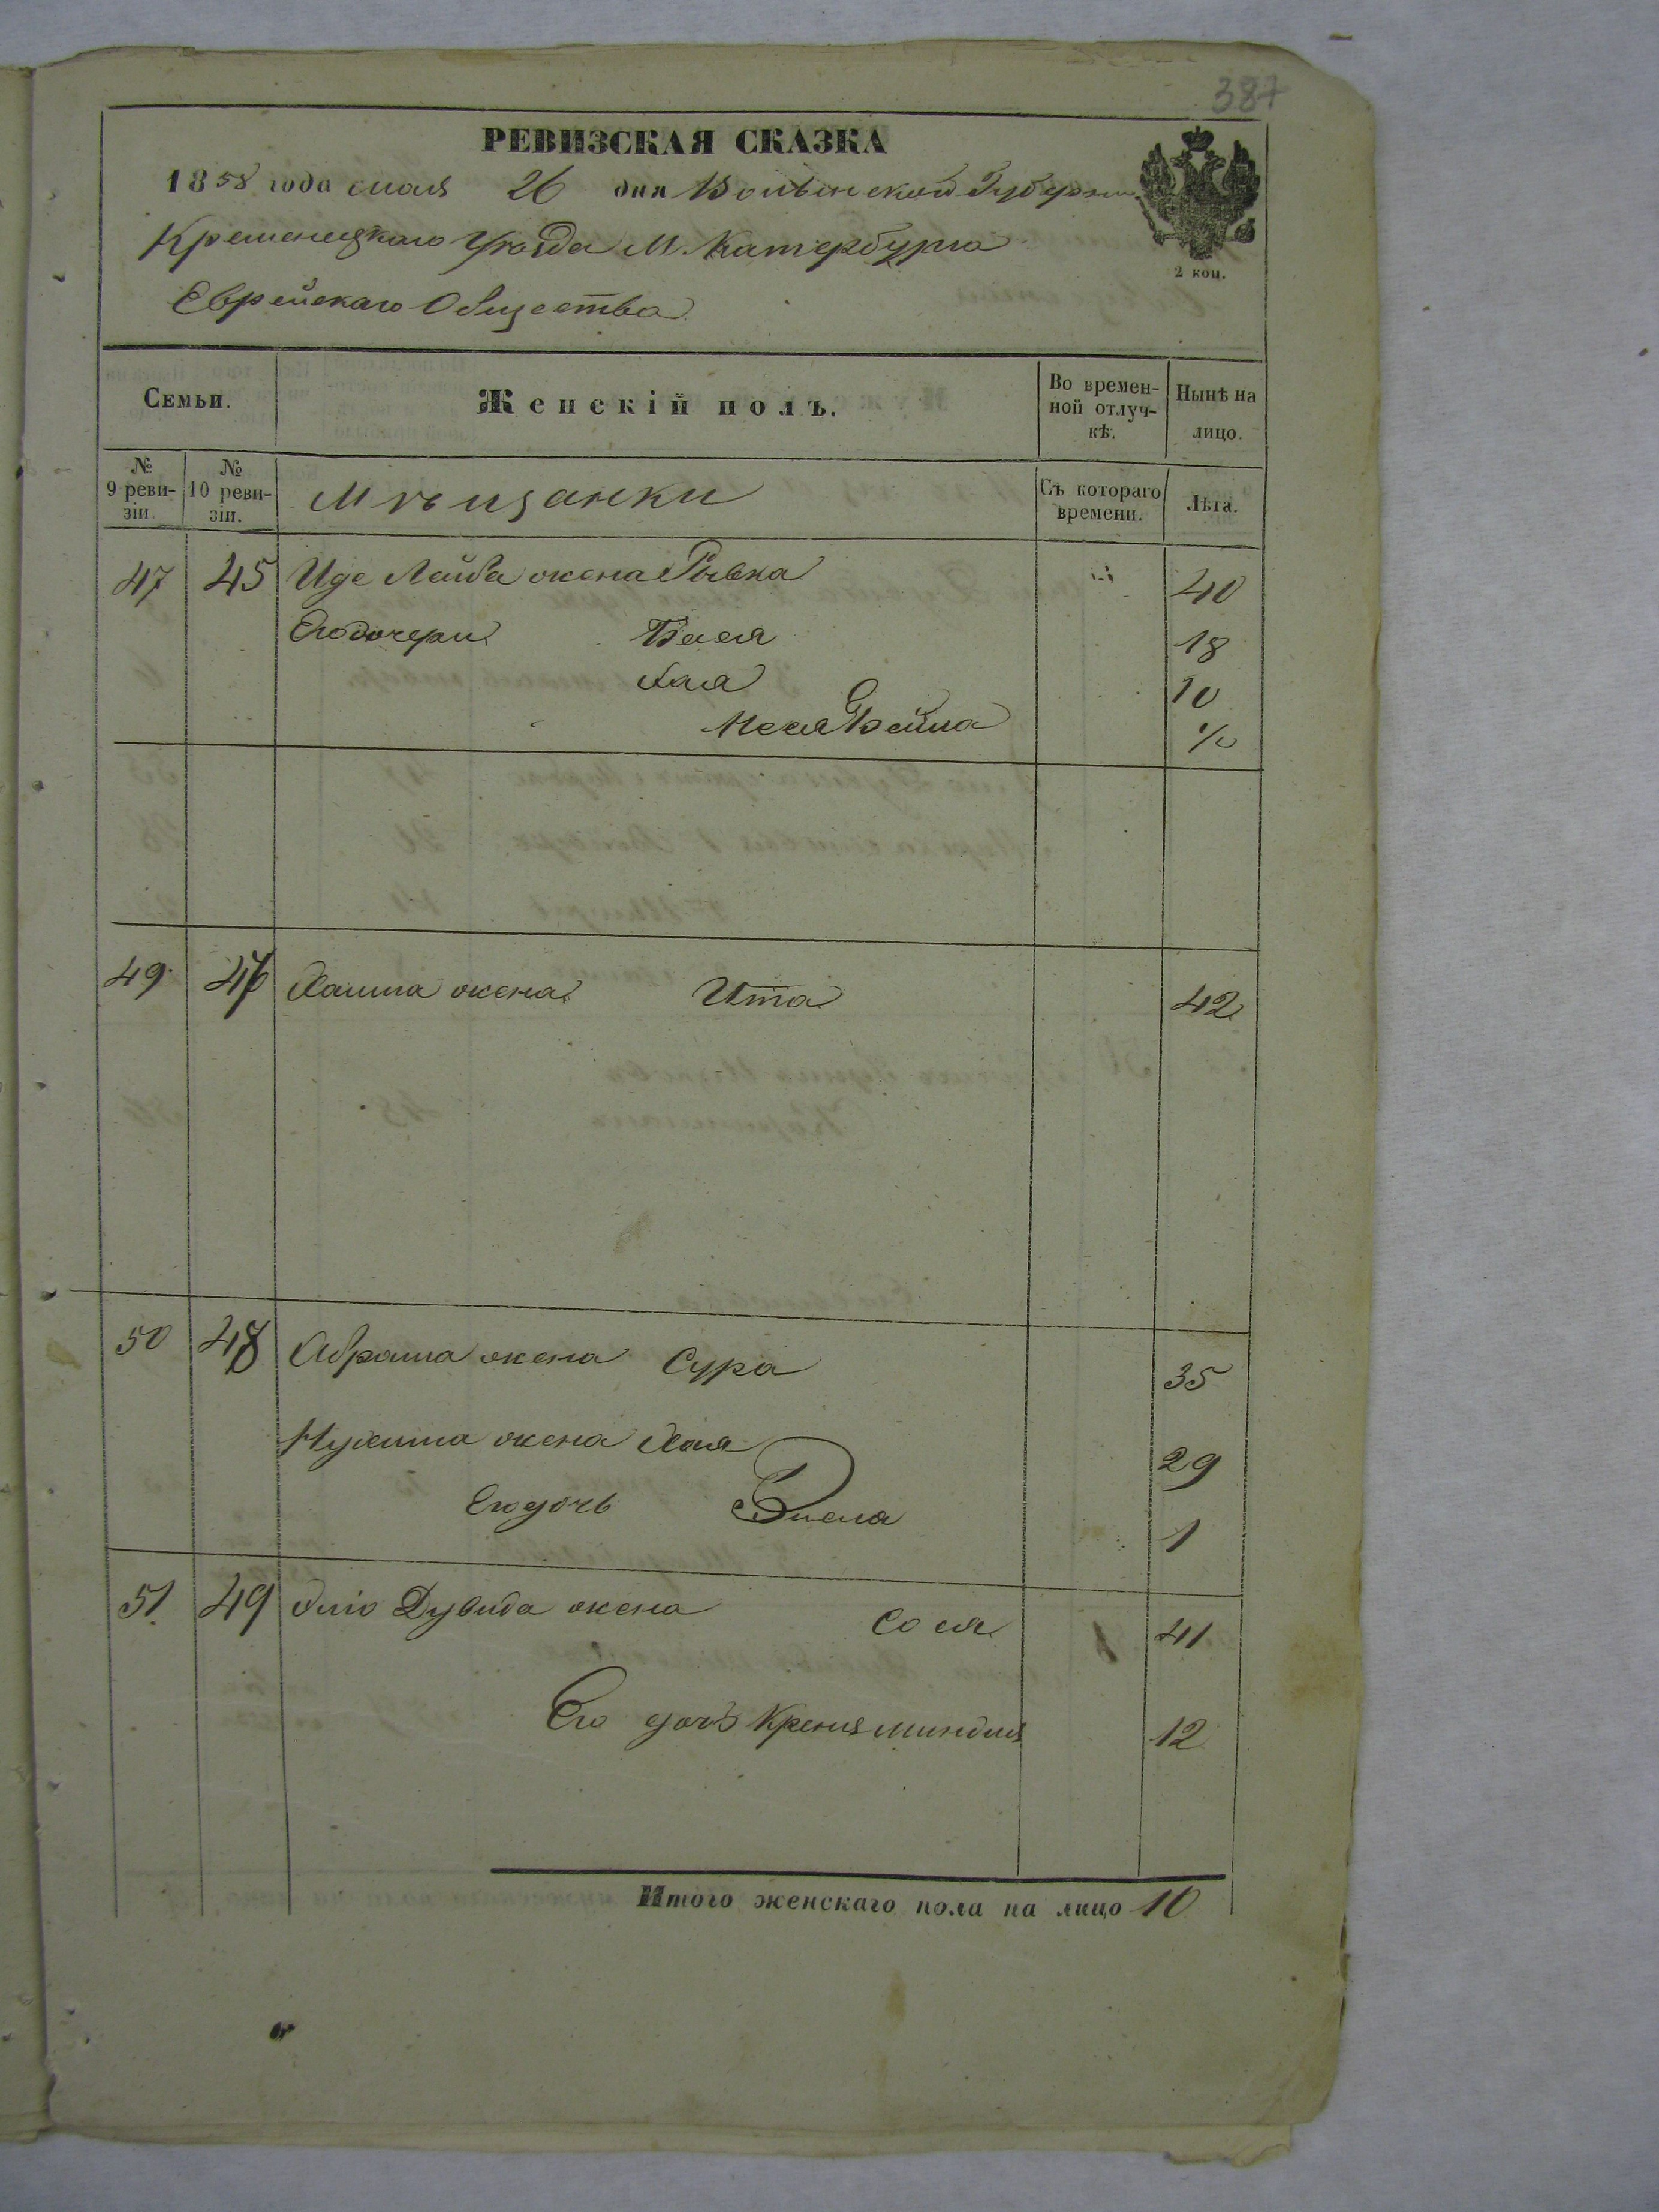 387
РЕВИЗСКАЯ СКАЗКА
1858 года мая 26 дня Волынской Губерніи
Кременецкаго Уѣзда М. Катербурга
2 коп.
Еврейскаго Общества
Семьи. Женскій полъ. Во времен-ной отлуч-кѣ. Нынѣ на лицо.
№ 9 реви-зіи. № 10 реви-зіи. Мѣщанки Съ котораго времени. Лѣта.
47 45 Иде Лейба жена Рывка 40
Его дочери Бася 18
Хая 10
Неся Бейла
49 47 Хаима жена Ита 42
50 48 Абрама жена Сура 35
Нухима жена Хая 29
Его дочь 1
51. 49 Элiо Дувида жена Сося 41
Его дочь Креня Миндля 12
Итого женскаго пола на лицо 10